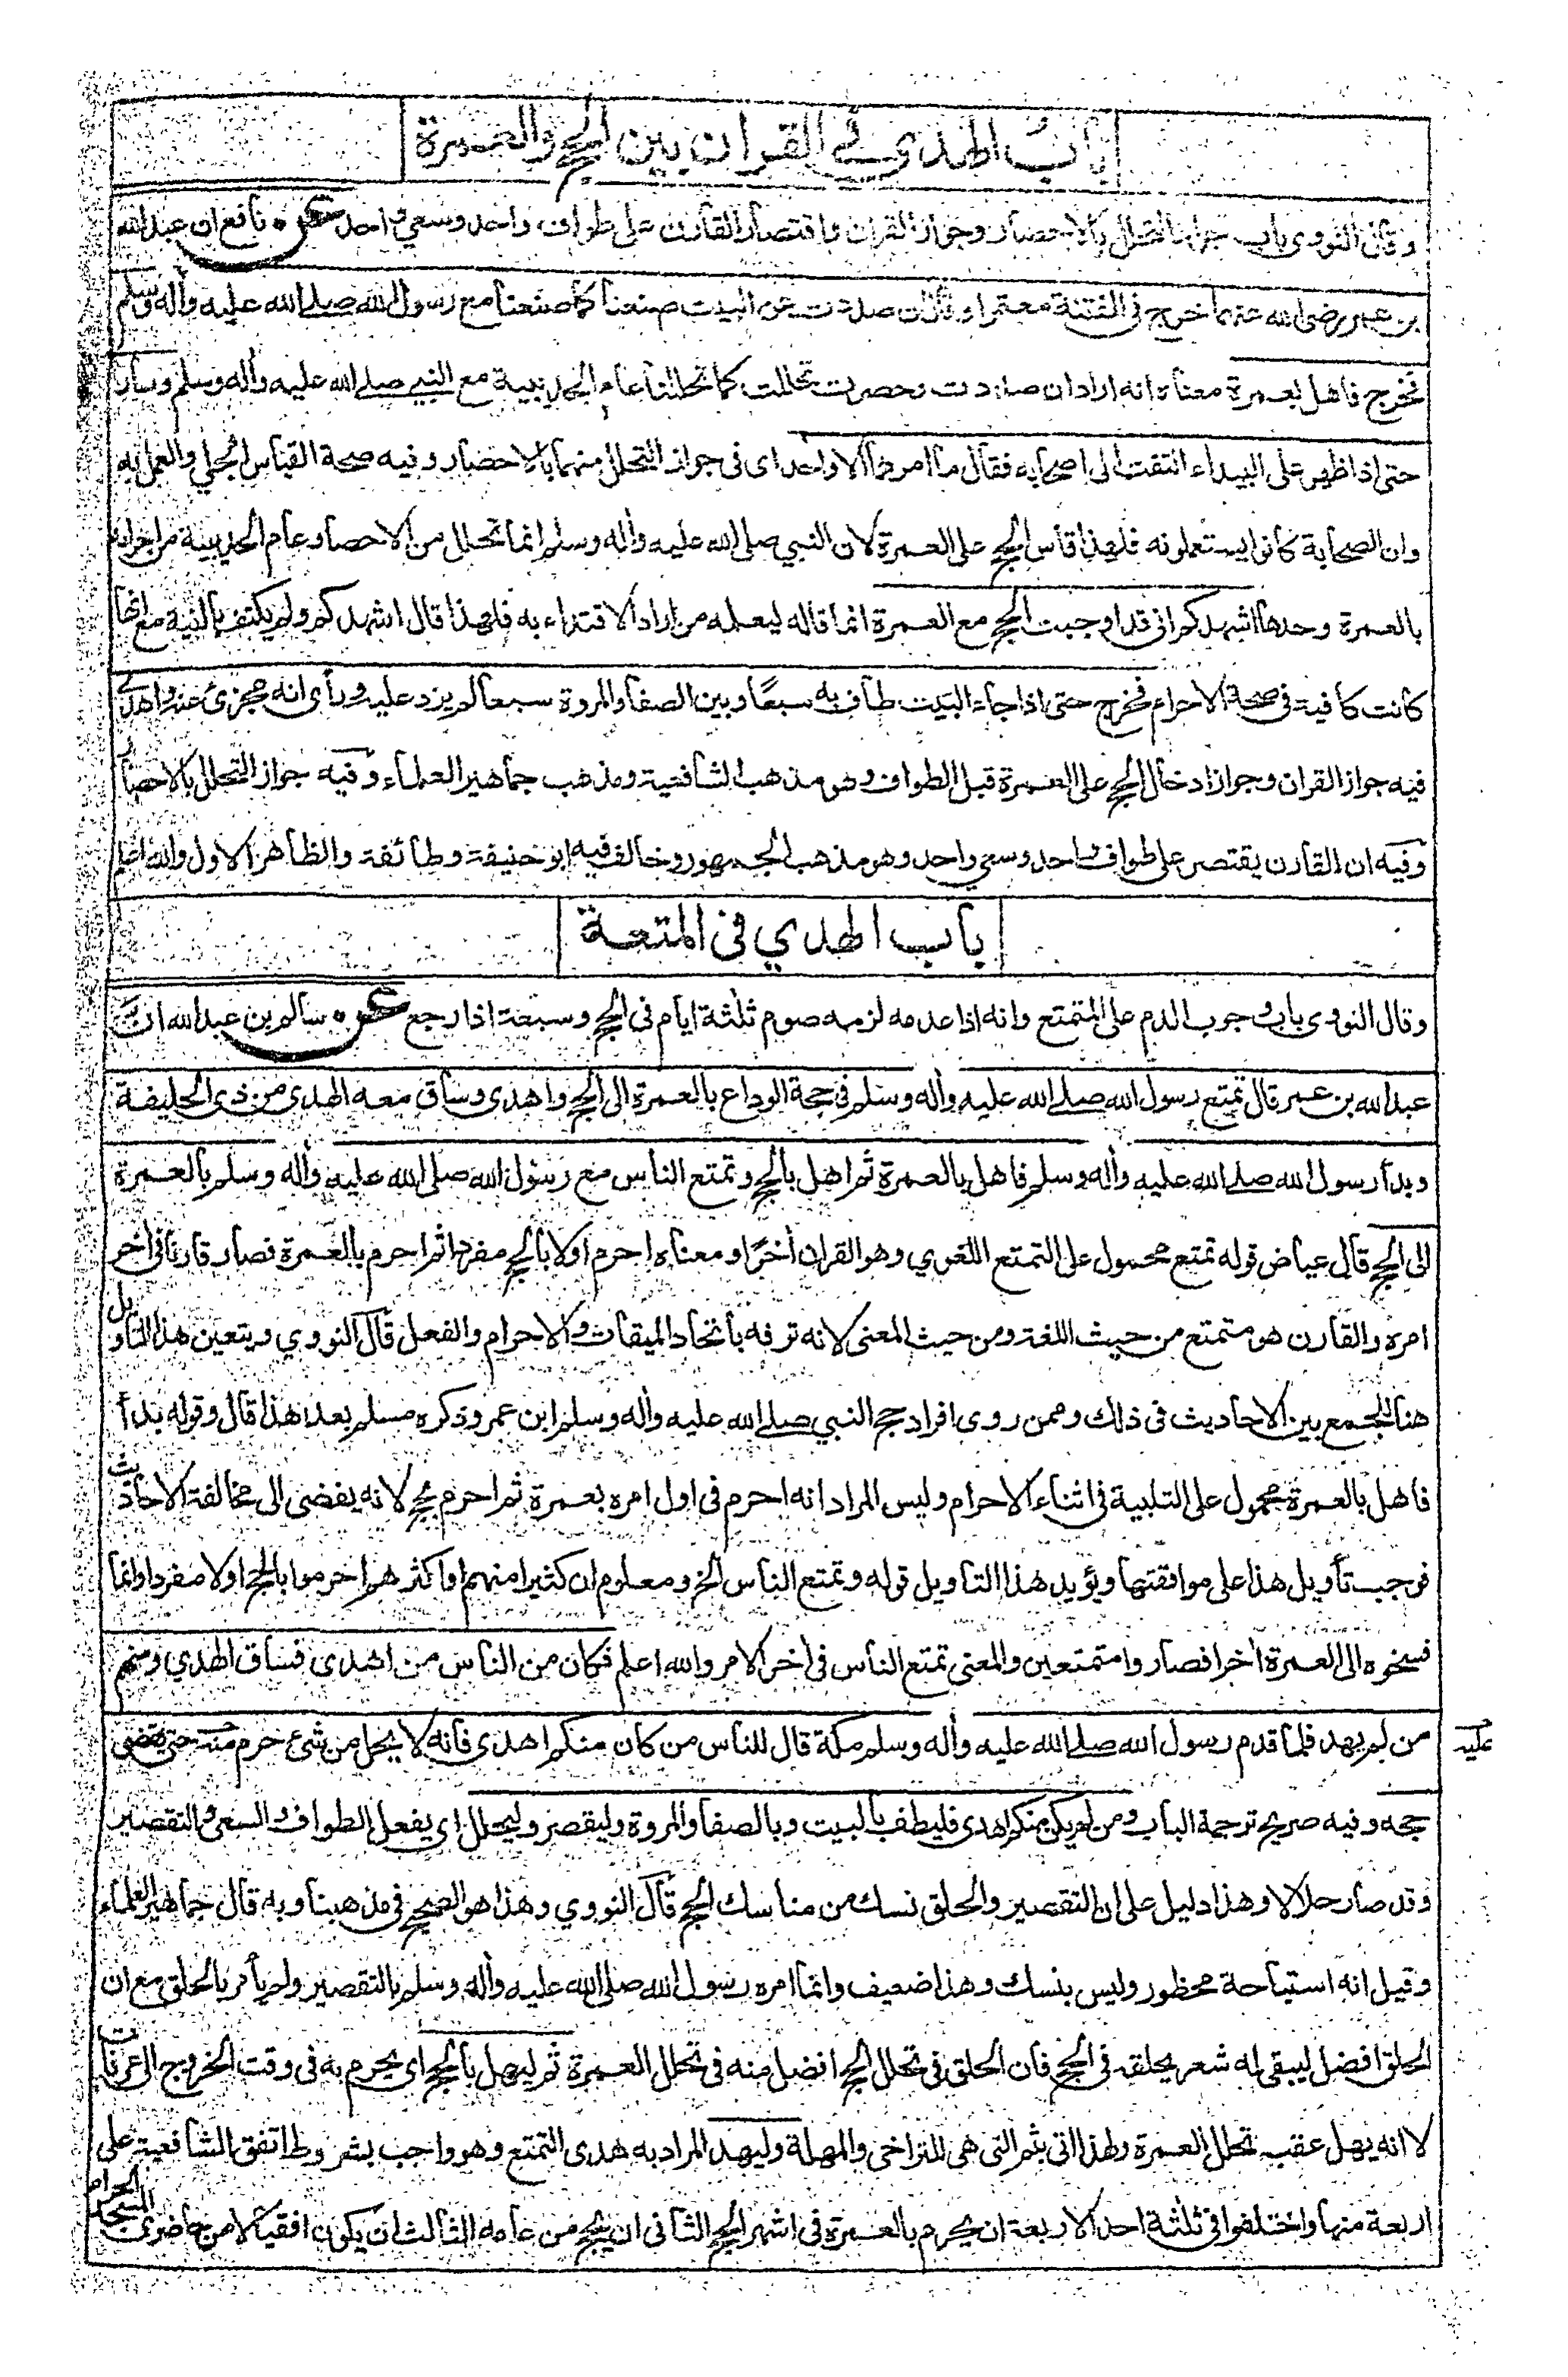 باب الهدي في القران بين الحج والعمرة
وقال النووي باب جواز التحلل بالاحصار وجواز القران واقتصار القارن على طواف واحد وسعي واحد عن نافع ان عبدالله
بن عمر رضي الله عنهما خرج في الفتنة معتمرا وقال ان صددت عن البيت صنعنا كما صنعنا مع رسول الله صلى الله عليه واله وسلم
فخرج فاهل بعمرة معناه انه اراد ان صددت وحصرت تحللت كما تحللنا عام الحديبية مع النبي صلى الله عليه واله وسلم وسار
حتى اذا ظهر على البيداء التفت الى اصحابه فقال ما امرهما الا واحد اى فى جواز التحلل منهما بالاحصار وفيه صحة القياس الجلي والعمل به
وان الصحابة كانوا يستعملونه فلهذا قاس الحج على العمرة لان النبي صلى الله عليه واله وسلم انما تحلل من الاحصار عام الحديبية من احرامه
بالعمرة وحدها اشهدكم انى قد اوجبت الحج مع العمرة انما قاله ليعلمه من اراد الاقتداء به فلهذا قال اشهدكم ولم يكتف بالنية مع انها
كانت كافية فى صحة الاحرام فخرج حتى اذا جاء البيت طاف به سبعًا وبين الصفا والمروة سبعا لم يزد عليه ورأى انه مجزئ عنه واهدى
فيه جواز القران وجواز ادخال الحج على العمرة قبل الطواف وهو مذهب الشافعية ومذهب جماهير العلماء وفيه جواز التحلل بالاحصار
وفيه ان القارن يقتصر على طواف واحد وسعي واحد وهو مذهب الجمهور وخالف فيه ابو حنيفة وطائفة والظاهر الاول والله اعلم
باب الهدي فى المتعة
وقال النووى باب وجوب الدم على المتمتع وانه اذا عدمه لزمه صوم ثلثة ايام فى الحج وسبعة اذا رجع عن سالم بن عبدالله ان
عبدالله بن عمر قال تمتع رسول الله صلى الله عليه واله وسلم فى حجة الوداع بالعمرة الى الحج واهدى وساق معه الهدى من ذى الحليفة
وبدأ رسول الله صلى الله عليه واله وسلم فاهل بالعمرة ثم اهل بالحج وتمتع الناس مع رسول الله صلى الله عليه واله وسلم بالعمرة
الى الحج قال عياض قوله تمتع محمول على التمتع اللغوي وهو القران أخرًا ومعناه احرم اولا بالحج مفردا ثم احرم بالعمرة فصار قارنا فى أخر
امره والقارن هو متمتع من حيث اللغة ومن حيث المعنى لانه ترفه باتحاد الميقات والاحرام والفعل قال النووي ويتعين هذا التاويل
هنا للجمع بين الاحاديث فى ذلك وممن روى افراد حج النبي صلى الله عليه واله وسلم ابن عمر وذكره مسلم بعد هذا قال وقوله بدأ
فاهل بالعمرة محمول على التلبية فى اثناء الاحرام وليس المراد انه احرم فى اول امره بعمرة ثم احرم بحج لانه يفضى الى مخالفة الاحاديث
فوجب تأويل هذا على موافقتها ويؤيد هذا التاويل قوله وتمتع الناس الخ ومعلوم ان كثيرا منهم او اكثرهم احرموا بالحج اولا مفردا وانما
فسخوه الى العمرة أخرا فصاروا متمتعين والمعنى تمتع الناس فى أخر الامر والله اعلم فكان من الناس من اهدى فساق الهدي ومنهم
من لم يهد فلما قدم رسول الله صلى الله عليه واله وسلم مكة قال للناس من كان منكم اهدى فانه لا يحل من شئ حرم منه حتى يقضى
عليه
حجه وفيه صريح ترجمة الباب ومن لم يكن منكم اهدى فليطف بالبيت وبالصفا والمروة وليقصر وليحلل اى يفعل الطواف والسعى والتقصير
وقد صار حلالا وهذا دليل على ان التقصير والحلق نسك من مناسك الحج قال النووي وهذا هو الصحيح فى مذهبنا وبه قال جماهير العلماء
وقيل انه استباحة محظور وليس بنسك وهذا ضعيف وانما امره رسول الله صلى الله عليه واله وسلم بالتقصير ولم يأمر بالحلق مع ان
الحلق افضل ليبقى له شعر يحلقه فى الحج فان الحلق فى تحلل الحج افضل منه فى تحلل العمرة ثم ليهل بالحج اى يحرم به فى وقت الخروج الى عرفات
لا انه يهل عقب تحلل العمرة ولهذا اتى بثم التى هى للتراخى والمهلة وليهد المراد به هدى التمتع وهو واجب بشروط اتفق الشافعية على
اربعة منها واختلفوا فى ثلثة احد الاربعة ان يحرم بالعمرة فى اشهر الحج الثانى ان يحج من عامه الثالث ان يكون افقيا لا من حاضرى المسجد الحرام